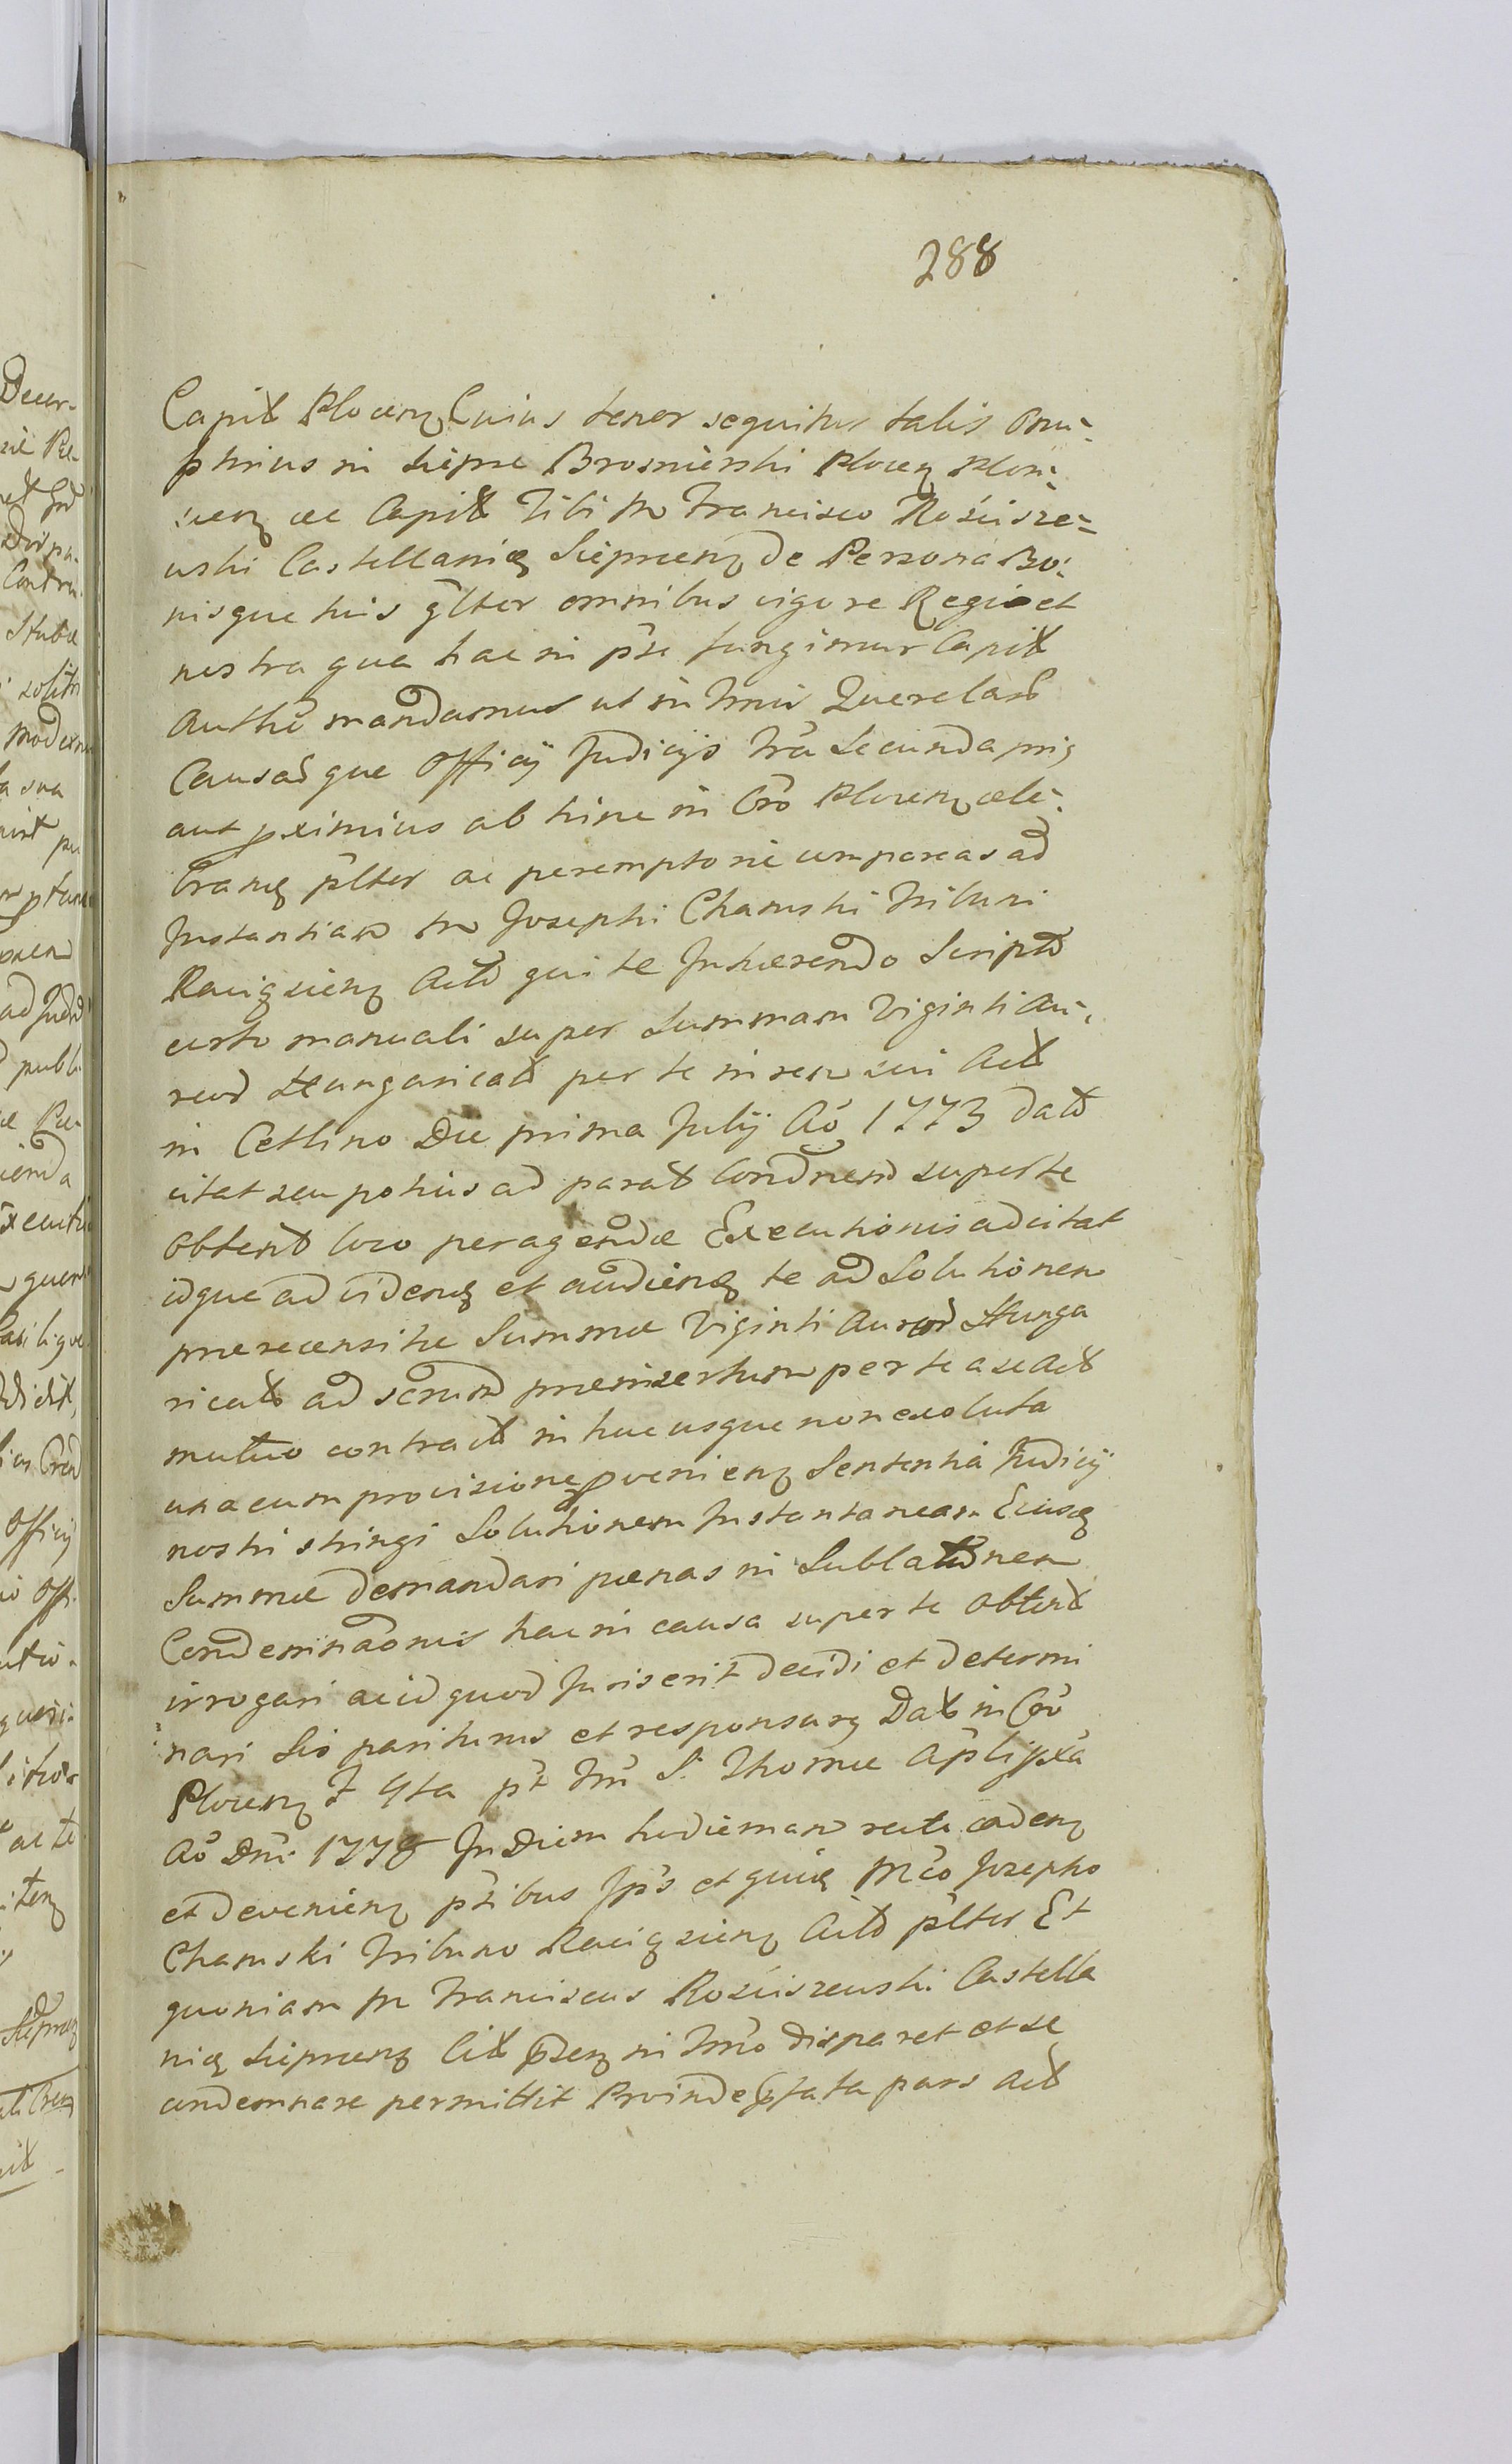 288
Capit Plocen Cuius tenor sequitur talis Onu-
phrius in Siepre Bromierski Plocen Plon-
scen ec Capit Tibi M Francisco Roscisze-
wski Castellanie Sieprcen de Persona Bo-
nisque tuis glter omnibus vigore Regia et
nostra qua hac in pte fungimur Capit
Authe mandamus ut in Tmis Querelar
Causarque Officij Judicijs Fria Secunda pris
aut pximius ab hinc in Cro Plocen cele-
bran plter ac peremptorie compareas ad
Instantiam M Josephi Chamski Tribuni
Raciązien Act qui te Inhaerendo Script
certo manuali super Summam Viginti Au-
reor Hungarical per te in rem sui Act
in Cetlino Die prima Julij Ao 1773 dat
citat seu potius ad parat Condnem super te
Obtent loco peragendae Executionis adcitat
idque ad viden et audien te ad Solutionem
praerecensitae Summae Viginti Aureor Hunga
rical ad scrum praeinsertum per te a se Act
mutuo contract in huc usque non exoluta
una cum provisione pvenien Sententia Judicij
nostri stringi Solutionem Instantaneam Eiusq
Summae demandari paenas in Sublationem
Condemnaonis hac in causa super te Obtent
irrogari ac id quod Juris erit decidi et determi
nari Sis pariturus et responsurq Dat in Cro
Plocen F 4ta pt Fm S. Thomae Apli pxa
Ao Dni 1778 In Diem hodiernam recte caden
et devenien ptibus Ips et quia Mco Josepho
Chamski Tribuno Raciązien Act plter Et
quoniam M Franciscus Rosciszewski Castella
niq Sieprcen Cit pden in Tmo disparet et se
condemnare permittit Proinde pfata pars Act